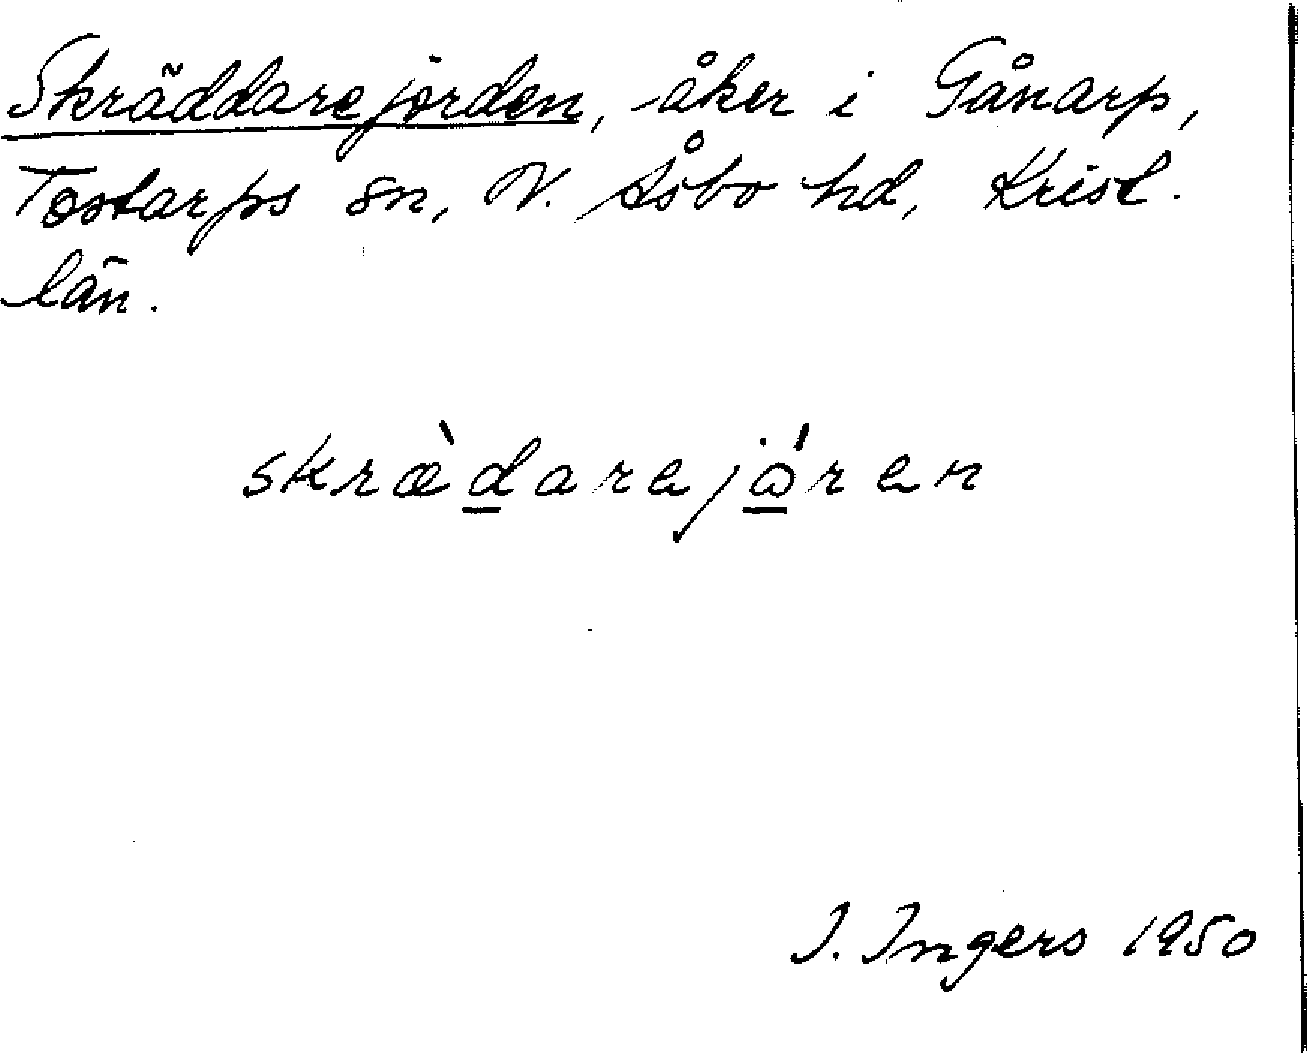 Skräddarejorden, åker i Gånarp,
Tostarps sn, N. Åsbo hd, Krist.
län.
skræ̀darejǻren
I. Ingers 1950